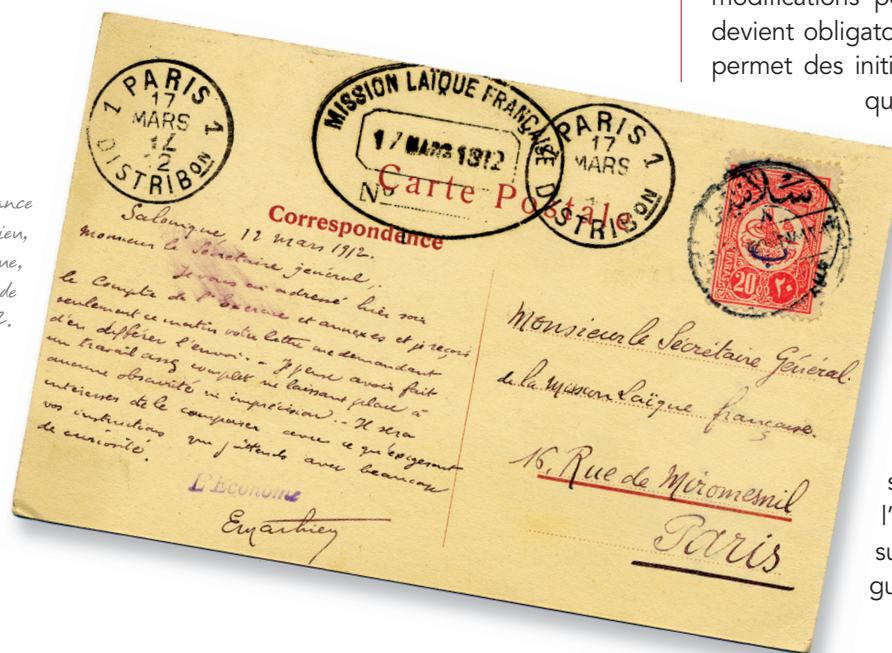 modifications p
devient obligato
permet des initi
qu
ance
ieu,
ue,
de
2.
1 PARIS 1
17
MARS
12
DISTRIBON
MISSION LAÏQUE FRANÇAISE
17 MARS 1912
No
PARIS 1
17
MARS
DISTRIBON
Carte Postale
Correspondence
سلانيك
20 ٢٠
Salonique 12 mars 1912.
Monsieur le Secrétaire général,
Je vous ai adressé hier soir
le Compte de l'Exercice et annexes et je reçois
seulement ce matin votre lettre me demandant
d'en différer l'envoi. - Je pense avoir fait
un travail assez complet ne laissant place à
aucune obscurité ni imprécision. - Il sera
intéressant de le comparer avec ce qu'exigeront
vos instructions que j'attends avec beaucoup
de curiosité.
L'Econome
Emathieu
Monsieur le Secrétaire Général.
de la Mission Laïque française.
16, Rue de Miromesnil
Paris
s
l'
su
gu